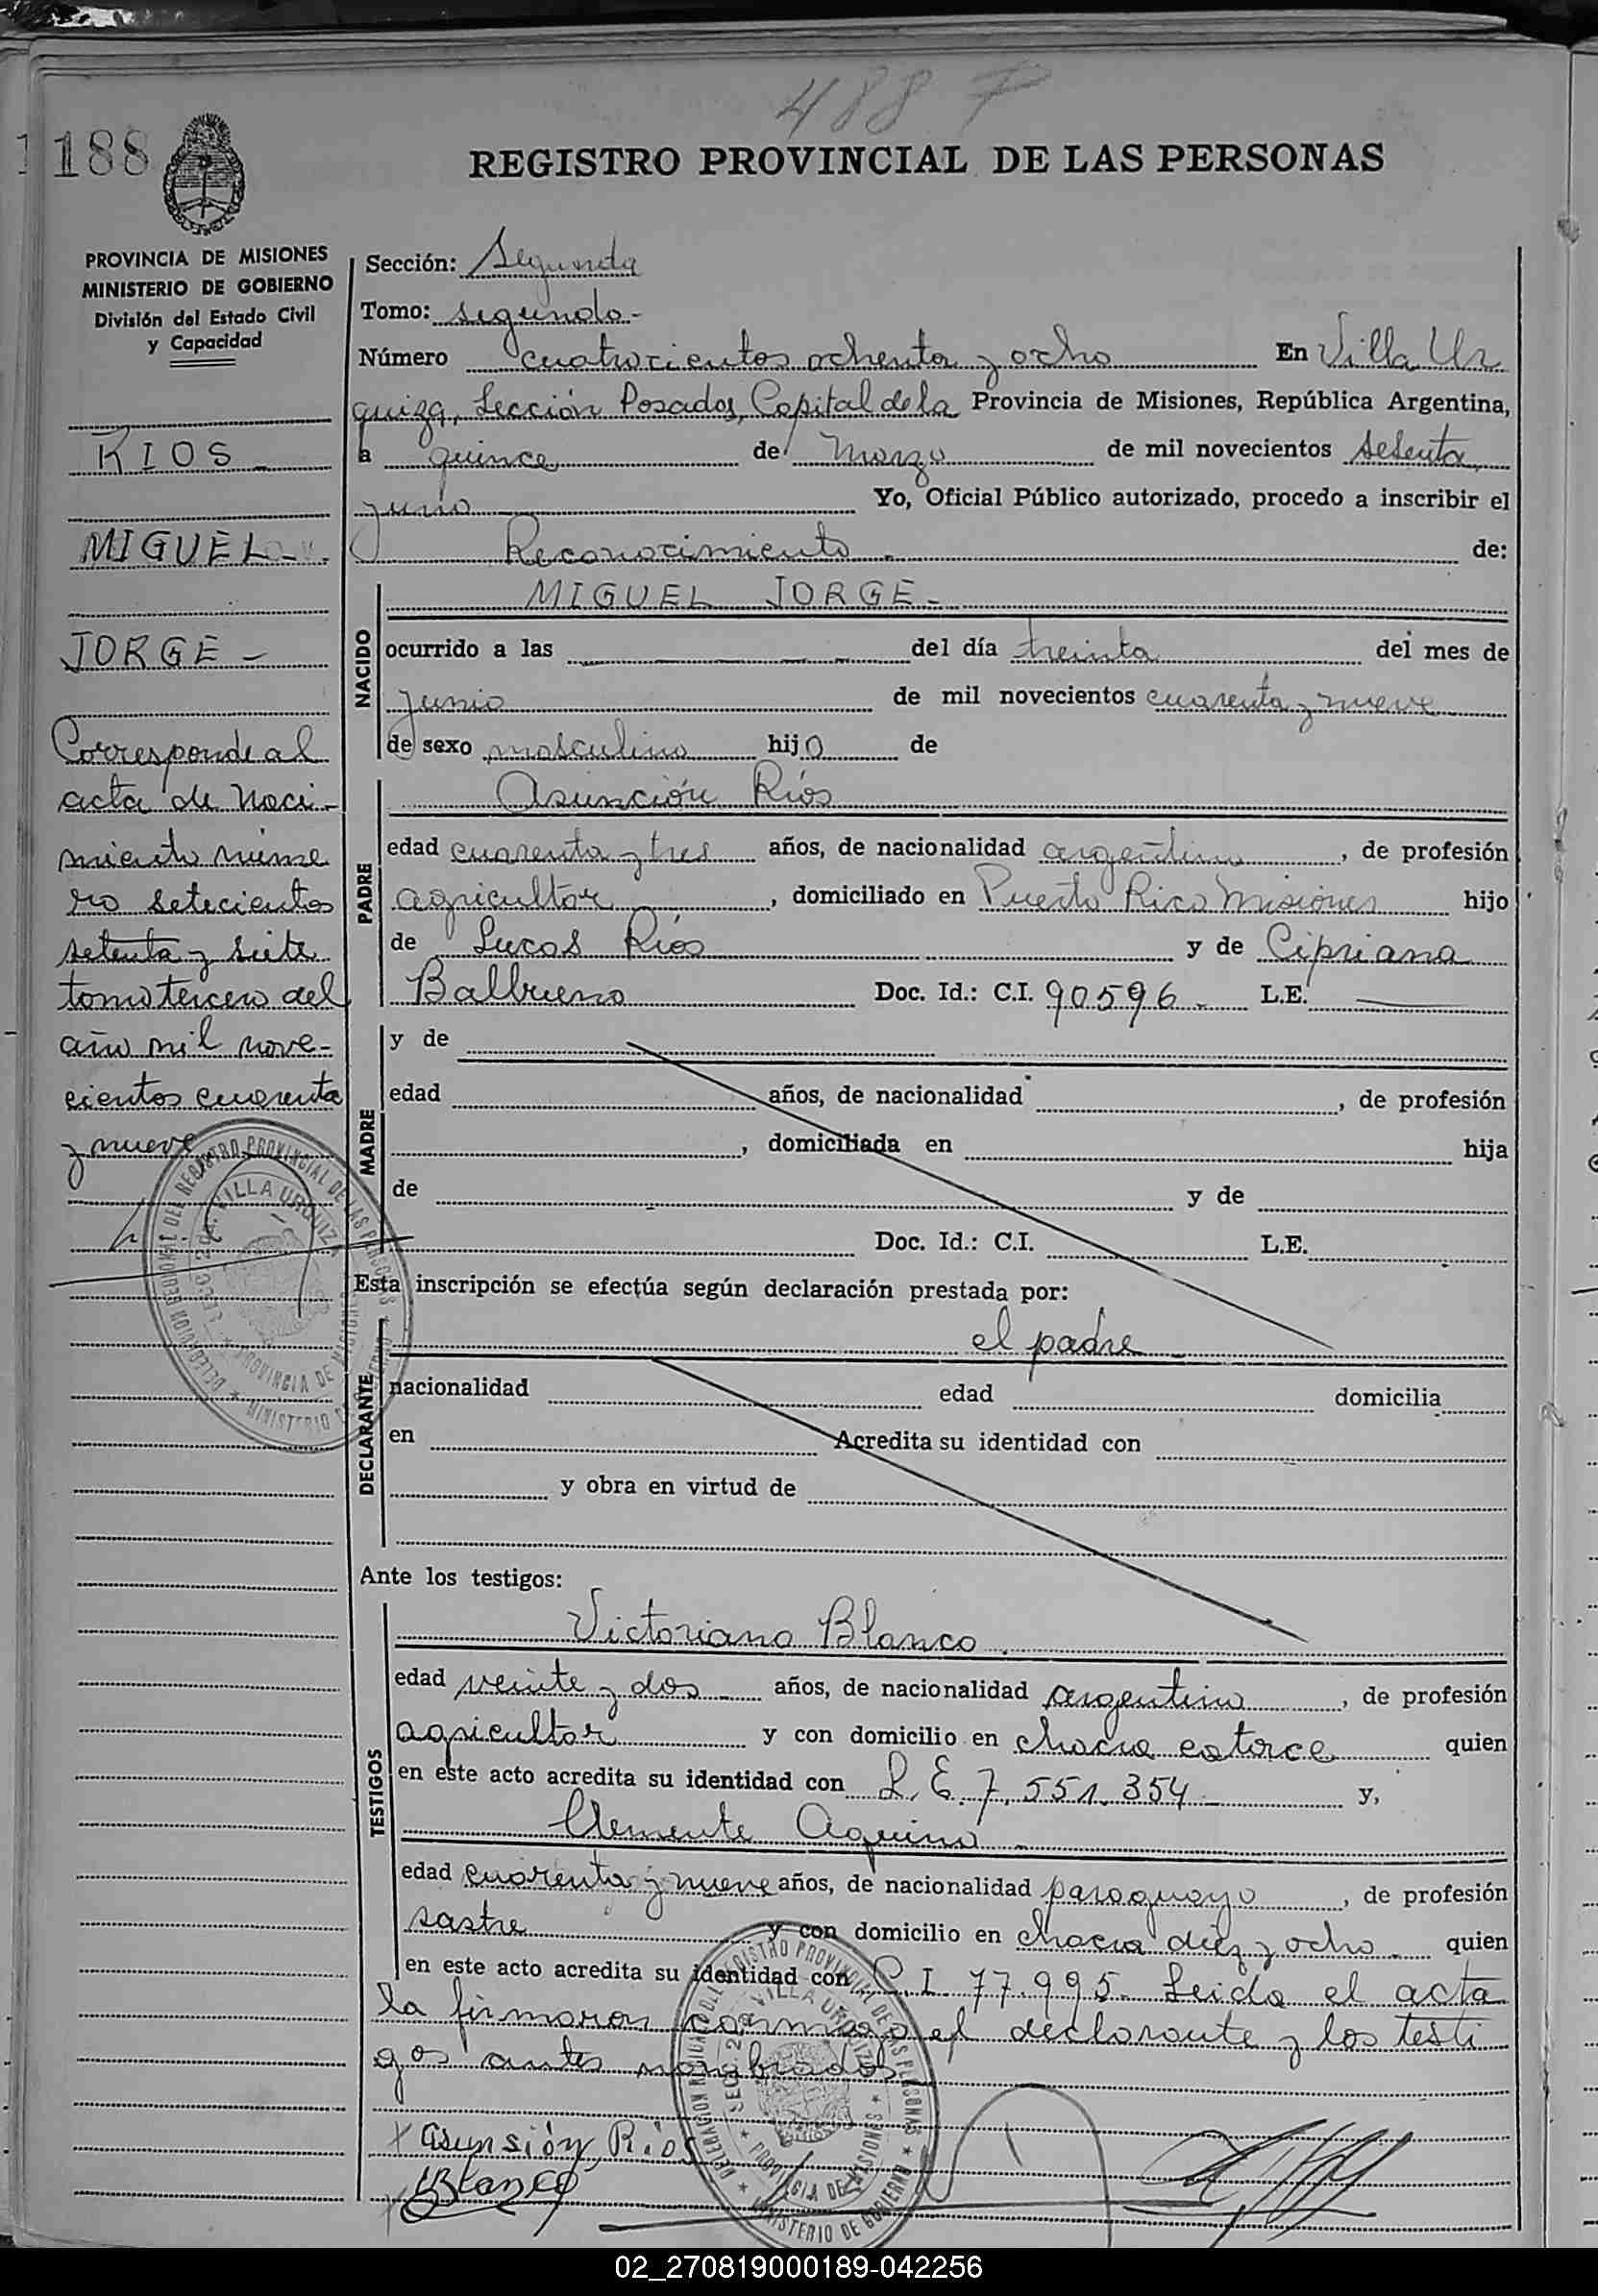 488 F
1188
REGISTRO PROVINCIAL DE LAS PERSONAS
PROVINCIA DE MISIONES
MINISTERIO DE GOBIERNO
División del Estado Civil
y Capacidad
RIOS -
MIGUEL -
JORGE -
Corresponde al
acta de Naci-
miento núme
ro setecientos
setenta y siete
tomo tercero del
año mil nove-
cientos cuarenta
y nueve
Sección: Segunda
Tomo: segundo -
Número cuatrocientos ochenta y ocho En Villa Ur
quiza, Sección Posadas, Capital de la Provincia de Misiones, República Argentina,
a quince de Marzo de mil novecientos setenta
y uno Yo, Oficial Público autorizado, procedo a inscribir el
Reconocimiento - de:
NACIDO
MIGUEL JORGE -
ocurrido a las - - - del día treinta del mes de
junio de mil novecientos cuarenta y nueve
de sexo masculino hijo de
PADRE
Asunción Ríos
edad cuarenta y tres años, de nacionalidad argentino, de profesión
agricultor, domiciliado en Puerto Rico Misiones hijo
de Lucas Ríos y de Cipriana
Balbueno Doc. Id.: C.I. 90596 - L.E.
MADRE
y de
edad años, de nacionalidad , de profesión
, domiciliada en hija
de y de
Doc. Id.: C.I. L.E.
Esta inscripción se efectúa según declaración prestada por:
DECLARANTE
el padre -
nacionalidad edad domicilia
en Acredita su identidad con
y obra en virtud de
Ante los testigos:
TESTIGOS
Victoriano Blanco
edad veinte y dos años, de nacionalidad argentino, de profesión
agricultor y con domicilio en chacra catorce quien
en este acto acredita su identidad con L.E. 7.551.354 - y,
Clemente Aquino -
edad cuarenta y nueve años, de nacionalidad paraguayo, de profesión
sastre y con domicilio en chacra diez y ocho - quien
en este acto acredita su identidad con C.I. 77.995 - Leida el acta
la firmaron conmigo el declarante y los testi
gos antes nombrados
x Asunsión Ríos
x VBlanco
DELEGACION REGIONAL DEL REGISTRO PROVINCIAL DE LAS PERSONAS
SECC. 2da. VILLA URQUIZA
PROVINCIA DE MISIONES
MINISTERIO DE GOBIERNO
02_270819000189-042256